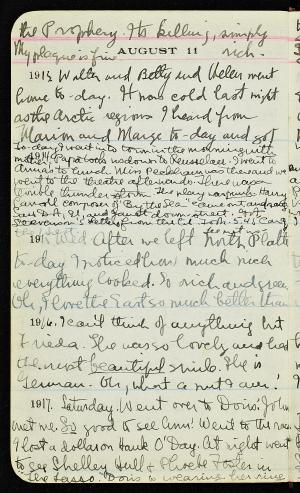 the Prophecy. Its killing, simply
My plague is fine rich.
AUGUST 11
1913. Walter and Betty and Helen went
home to-day. It was cold last night
as the Arctic regions I heard from
Marion and Marge to-day and got
To-day I went in to town in the morning with
mother. Papa took us down to Rensselaer. I went to
Anna's to lunch. Miss Peckham was there and we
went to the theatre afterwards. There was a
terrible thunder storm. The new composer Harry
Carroll composer of "By the Sea" came out and sang
1915 Wed After we left North Platte
to-day I noticed how much rich
everything looked. So rich and green
Oh, I love the East so much better than
1916. I can't think of anything but
Frieda. She was so lovely and had
the most beautiful smile. She is
German. Oh, what a nut I am!
1917. Saturday. Went over to Doris'. John
met me. So good to see Ann! Went to the races
I lost a dollar on Hank O'Day. At night went
to see Shelley Hull & Phoebe Foster in
the Lasso. Doris is wearing her ring